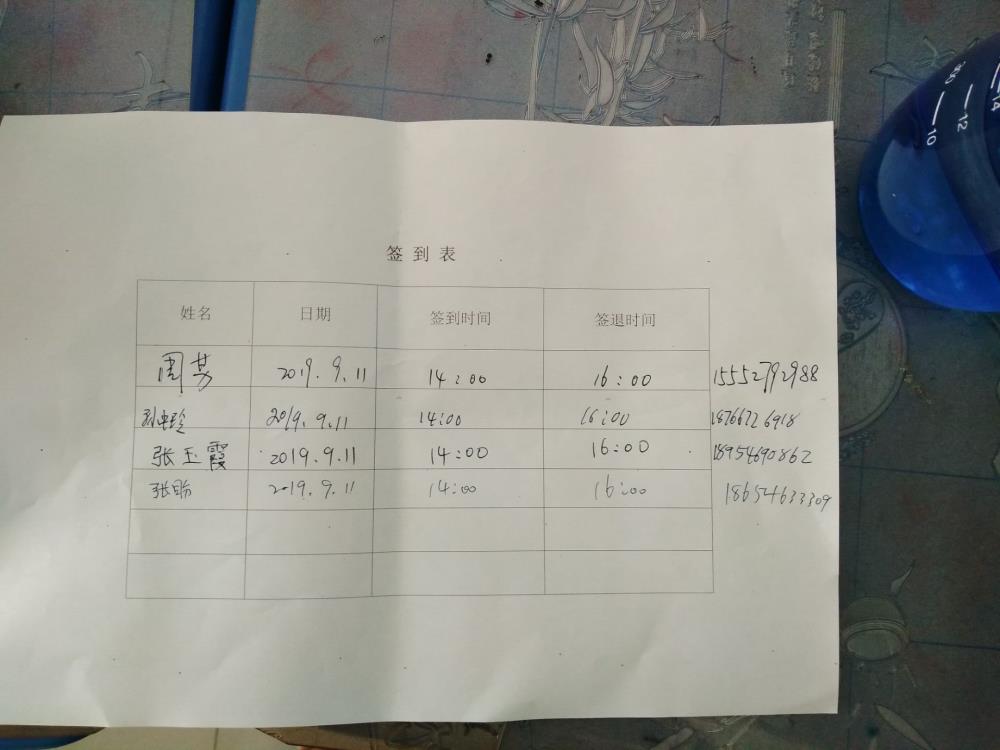 签到表
姓名 日期 签到时间 签退时间
周 2019.9.11 14:00 16:00 15552792988
孙 2019.9.11 14:00 16:00
张玉霞 2019.9.11 14:00 16:00 18954690862
张盼 2019.9.11 14:00 16:00 18654633309
14
12
10